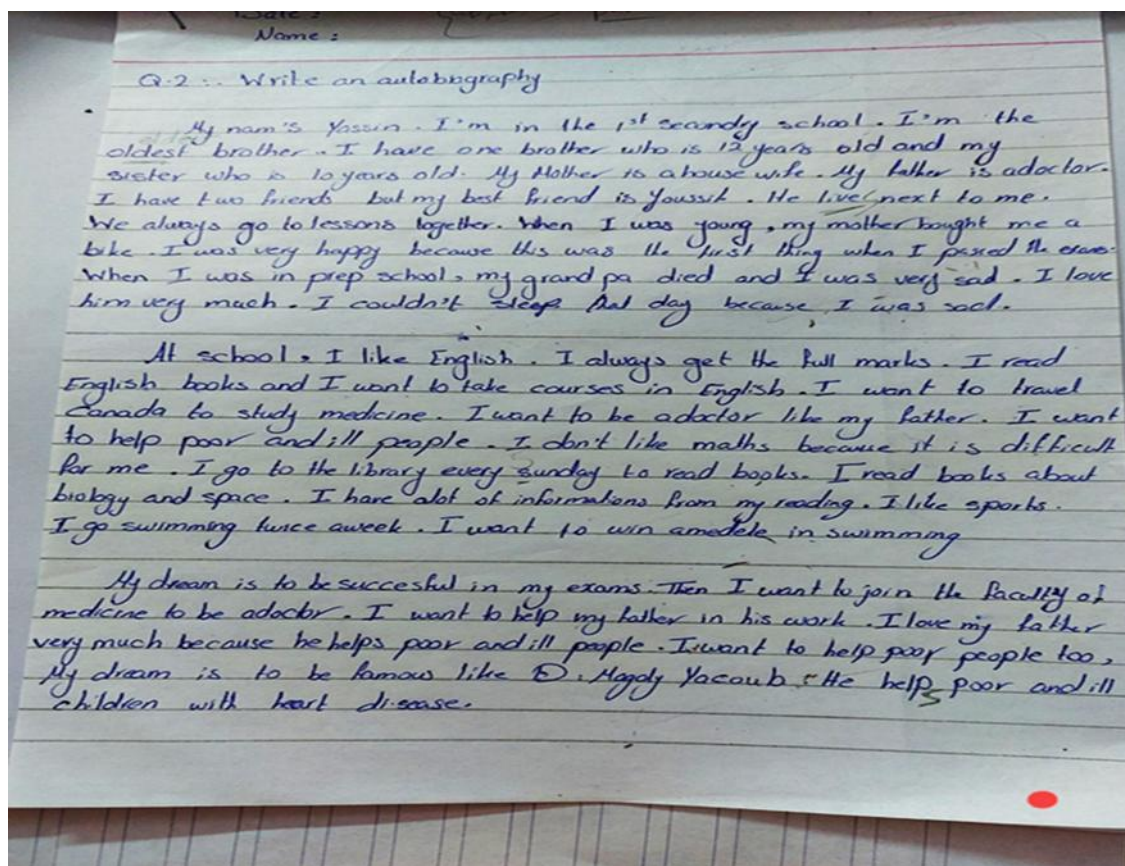 Date :
Name :
Q.2 :. Write an autobiography
My nam's Yossin. I'm in the 1st secondy school. I'm the
oldest brother. I have one brother who is 12 years old and my
sister who is 10 years old. My Mother is a house wife. My father is adoctor.
I have two friends but my best friend is Youssif. He live next to me.
We always go to lessons together. When I was young, my mother bought me a
bike. I was very happy because this was the first thing when I passed the exams.
When I was in prep school, my grand pa died and I was very sad. I love
him very much. I couldn't sleep that day because I was sad.
At school, I like English. I always get the full marks. I read
English books and I want to take courses in English. I want to travel
Canada to study medicine. I want to be adoctor like my father. I want
to help poor and ill people. I don't like maths because it is difficult
for me. I go to the library every sunday to read books. I read books about
biology and space. I have alot of informations from my reading. I like sports.
I go swimming twice aweek. I want to win amedele in swimming
My dream is to be succesful in my exams. Then I want to join the faculty of
medicine to be adoctor. I want to help my father in his work. I love my father
very much because he helps poor and ill people. I want to help poor people too,
My dream is to be famous like D. Magdy Yacoub. He helps poor and ill
children with heart disease.